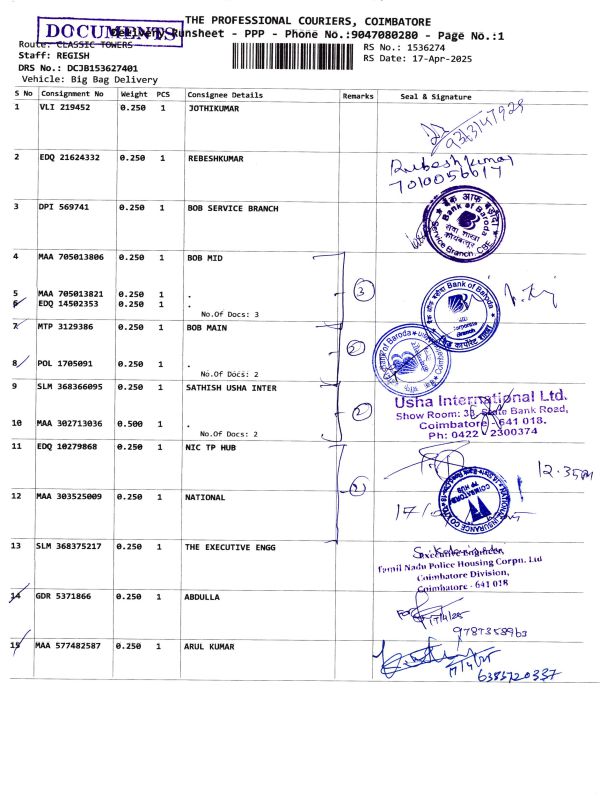 THE PROFESSIONAL COURIERS, COIMBATORE
DOCUMENTS
Delivery Runsheet - PPP - Phone No.:9047080280 - Page No.:1
Route: CLASSIC TOWERS
RS No.: 1536274
Staff: REGISH
RS Date: 17-Apr-2025
DRS No.: DCJB153627401
Vehicle: Big Bag Delivery
S No Consignment No Weight PCS Consignee Details Remarks Seal & Signature
1 VLI 219452 0.250 1 JOTHIKUMAR
2 EDQ 21624332 0.250 1 REBESHKUMAR
Rubeshkumar
7010056617
3 DPI 569741 0.250 1 BOB SERVICE BRANCH
बैंक ऑफ बड़ौदा
Bank of Baroda
सेवा शाखा
कोयंबतूर
Service Branch, CBE
4 MAA 705013806 0.250 1 BOB MID
5 MAA 705013821 0.250 1 .
3
6 EDQ 14502353 0.250 1 .
No.Of Docs: 3
Bank of Baroda
Corporate
Branch
7 MTP 3129386 0.250 1 BOB MAIN
8 POL 1705091 0.250 1 .
No.Of Docs: 2
2
Bank of Baroda
9 SLM 368366095 0.250 1 SATHISH USHA INTER
10 MAA 302713036 0.500 1 .
No.Of Docs: 2
2
Usha International Ltd.
Show Room: 33, State Bank Road,
Coimbatore - 641 018.
Ph: 0422 - 2300374
11 EDQ 10279868 0.250 1 NIC TP HUB
12.35PM
2
12 MAA 303525009 0.250 1 NATIONAL
NATIONAL INSURANCE CO. LTD.
COIMBATORE
TP HUB
13 SLM 368375217 0.250 1 THE EXECUTIVE ENGG
Executive Engineer,
Tamil Nadu Police Housing Corpn. Ltd
Coimbatore Division,
Coimbatore - 641 018
14 GDR 5371866 0.250 1 ABDULLA
17/4/25
15 MAA 577482587 0.250 1 ARUL KUMAR
17/4/25
6385720337